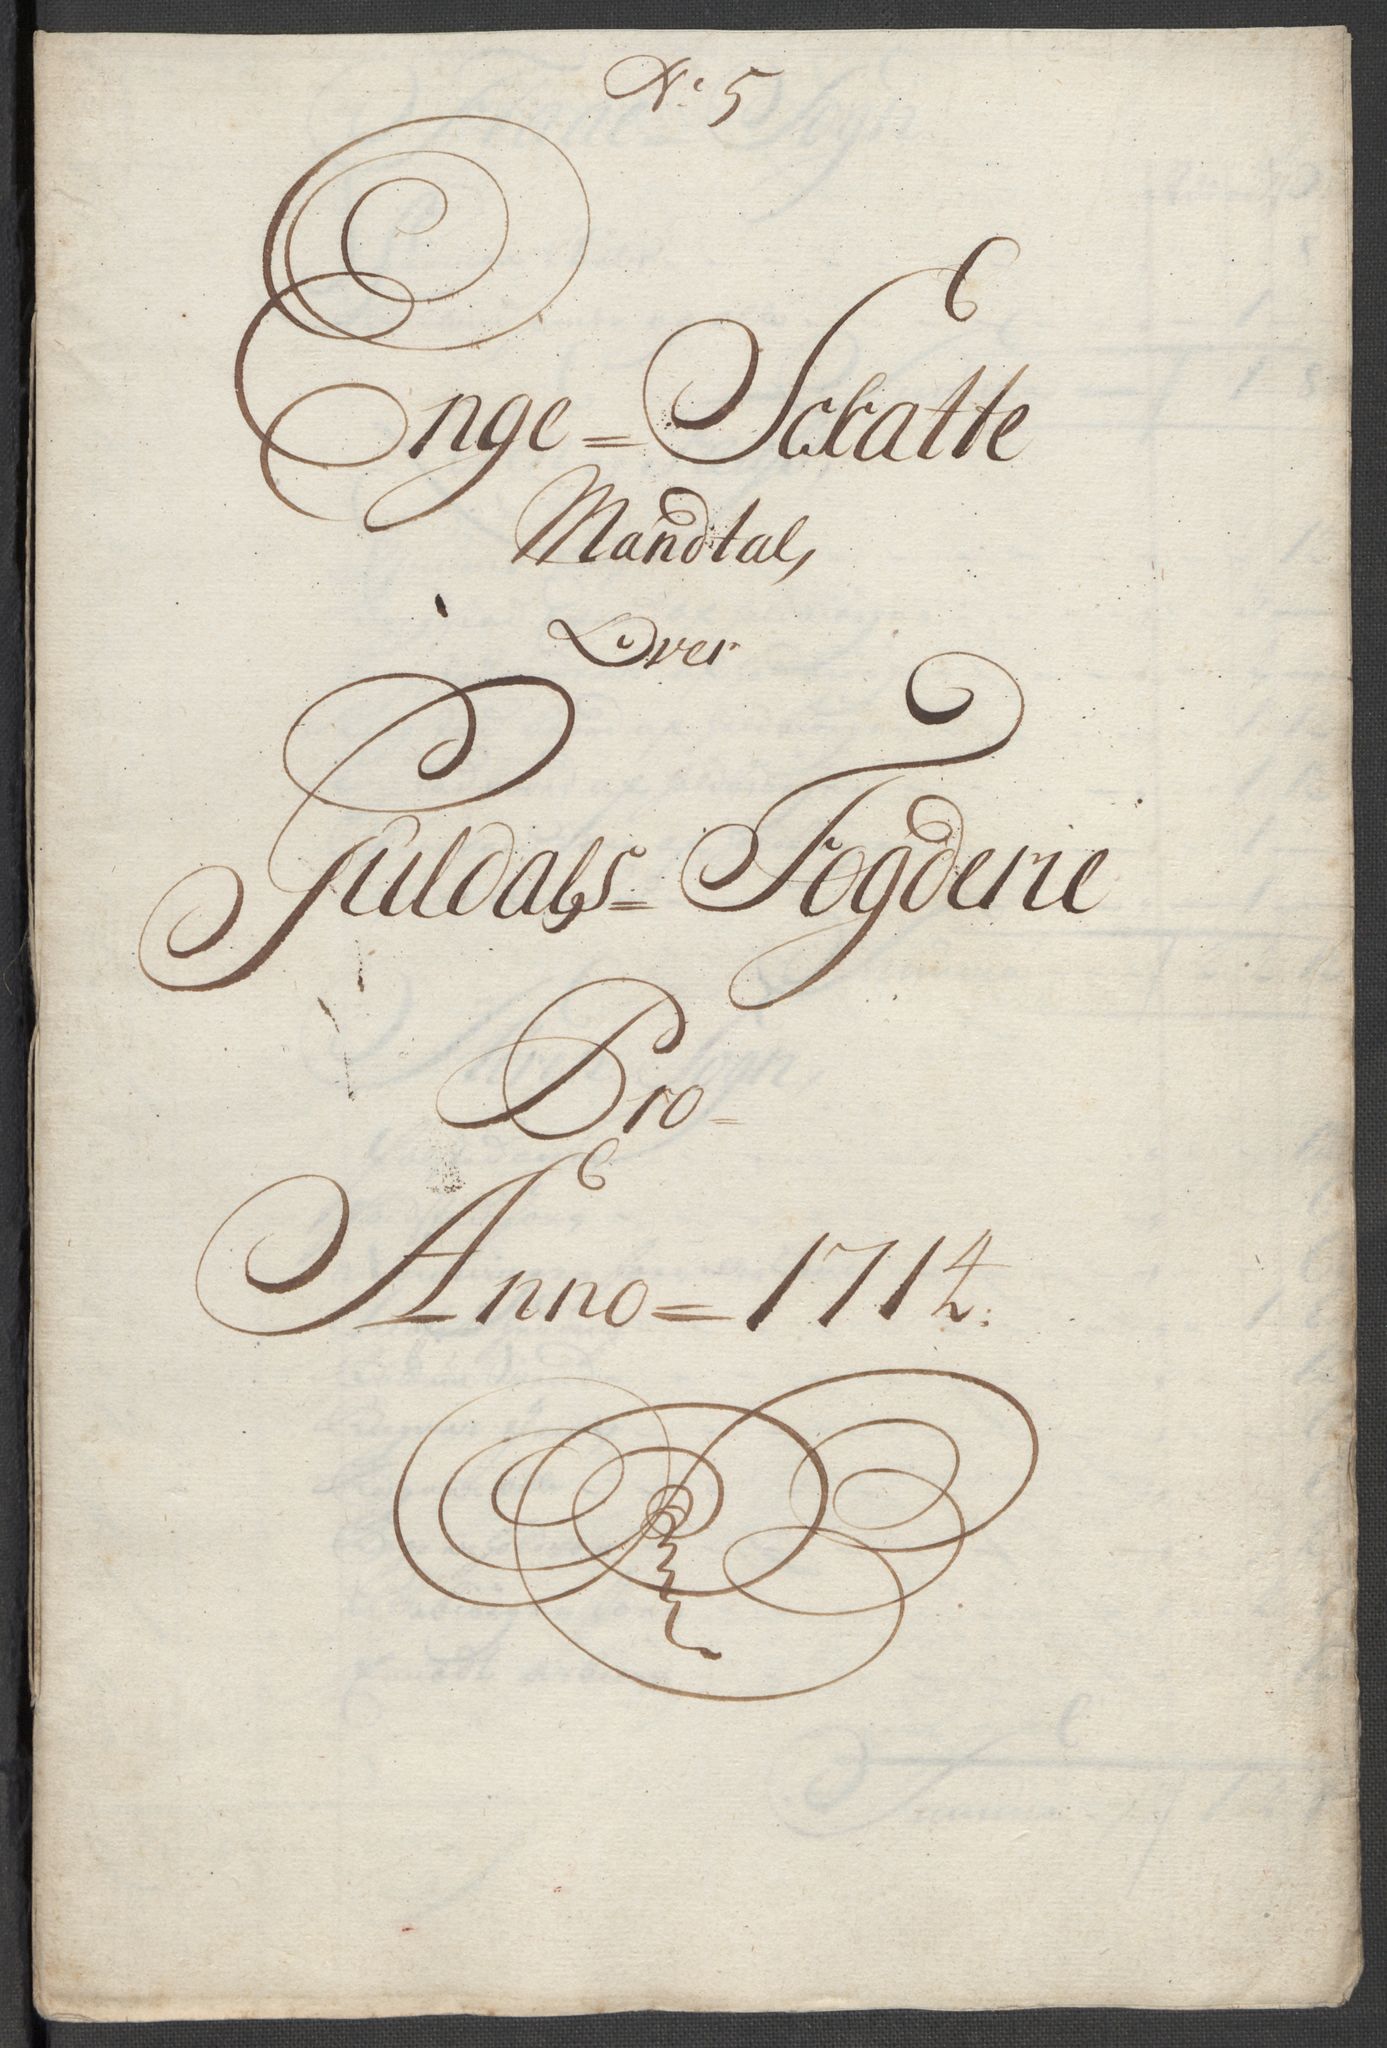 No 5
Enge = Schatte
Mandtal,
Over
Guldals = Fogderie
Pro
Anno = 1714.